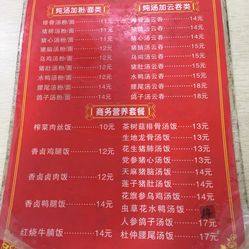 炖汤加粉/面类
排骨汤粉/面 11元
猪肺汤粉/面 11元
猪心汤粉/面 11元
猪脑汤粉/面 12元
乌鸡汤粉/面 12元
猪肚汤粉/面
水鸭汤粉/面
腰尾汤粉/面
鸽子汤粉/面
炖汤加云吞类
排骨汤云吞 14元
猪肺汤云吞 14元
猪心汤云吞 14元
猪脑汤云吞
乌鸡汤云吞
猪肚汤云吞
水鸭汤云吞
腰尾汤云吞
鸽子汤云吞
商务营养套餐
榨菜肉丝饭 10元
香卤鸡腿饭 12元
香卤卤肉饭 12元
香卤鸭腿饭 14元
红烧牛腩饭 14元
茶树菇排骨汤饭 13元
生地龙骨汤饭 13元
花生猪肺汤饭 13元
党参猪心汤饭 13元
天麻猪脑汤饭 14元
莲子猪肚汤饭 14元
花旗参乌鸡汤饭 14元
虫草花水鸭汤饭
人参鸽子汤饭 17元
杜仲腰尾汤饭 17元